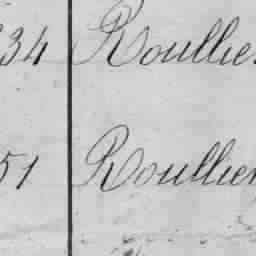 34 Roullier
51 Roullier